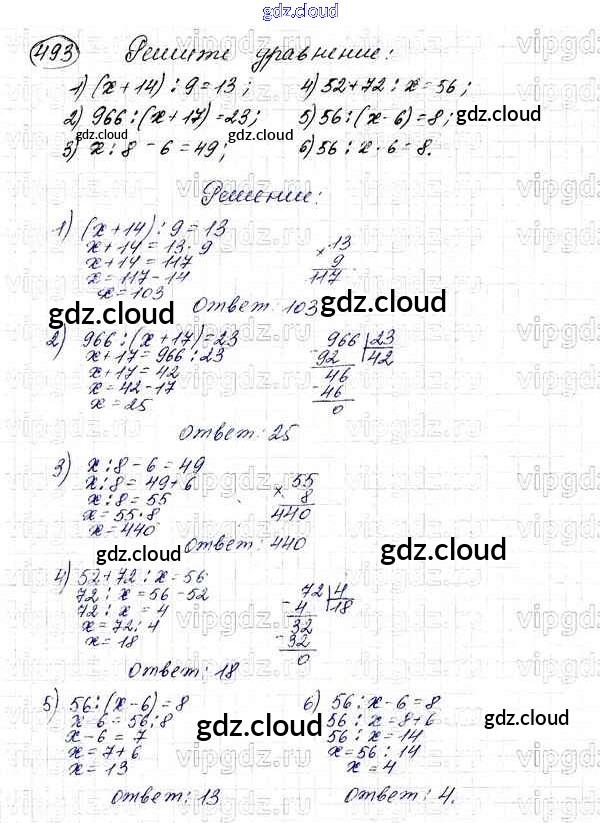 gdz.cloud
493 Решите уравнение:
1) (x+14) : 9 = 13;
4) 52+72 : x = 56;
2) 966 : (x+17) = 23;
5) 56 : (x-6) = 8;
3) x : 8 - 6 = 49;
6) 56 : x - 6 = 8.
gdz.cloud
gdz.cloud
Решение:
1) (x+14) : 9 = 13
x+14 = 13 · 9
x+14 = 117
x = 117 - 14
x = 103
× 13
9
117
Ответ: 103
gdz.cloud
gdz.cloud
2) 966 : (x+17) = 23
x+17 = 966 : 23
x+17 = 42
x = 42 - 17
x = 25
966 | 23
- 92 | 42
46
- 46
0
Ответ: 25
3) x : 8 - 6 = 49
x : 8 = 49 + 6
x : 8 = 55
x = 55 · 8
x = 440
× 55
8
440
Ответ: 440
gdz.cloud
gdz.cloud
4) 52+72 : x = 56
72 : x = 56 - 52
72 : x = 4
x = 72 : 4
x = 18
72 | 4
- 4 | 18
32
- 32
0
Ответ: 18
5) 56 : (x-6) = 8
x-6 = 56 : 8
x-6 = 7
x = 7+6
x = 13
Ответ: 13
6) 56 : x - 6 = 8
56 : x = 8+6
56 : x = 14
x = 56 : 14
x = 4
Ответ: 4.
gdz.cloud
gdz.cloud
vipgdz.ru